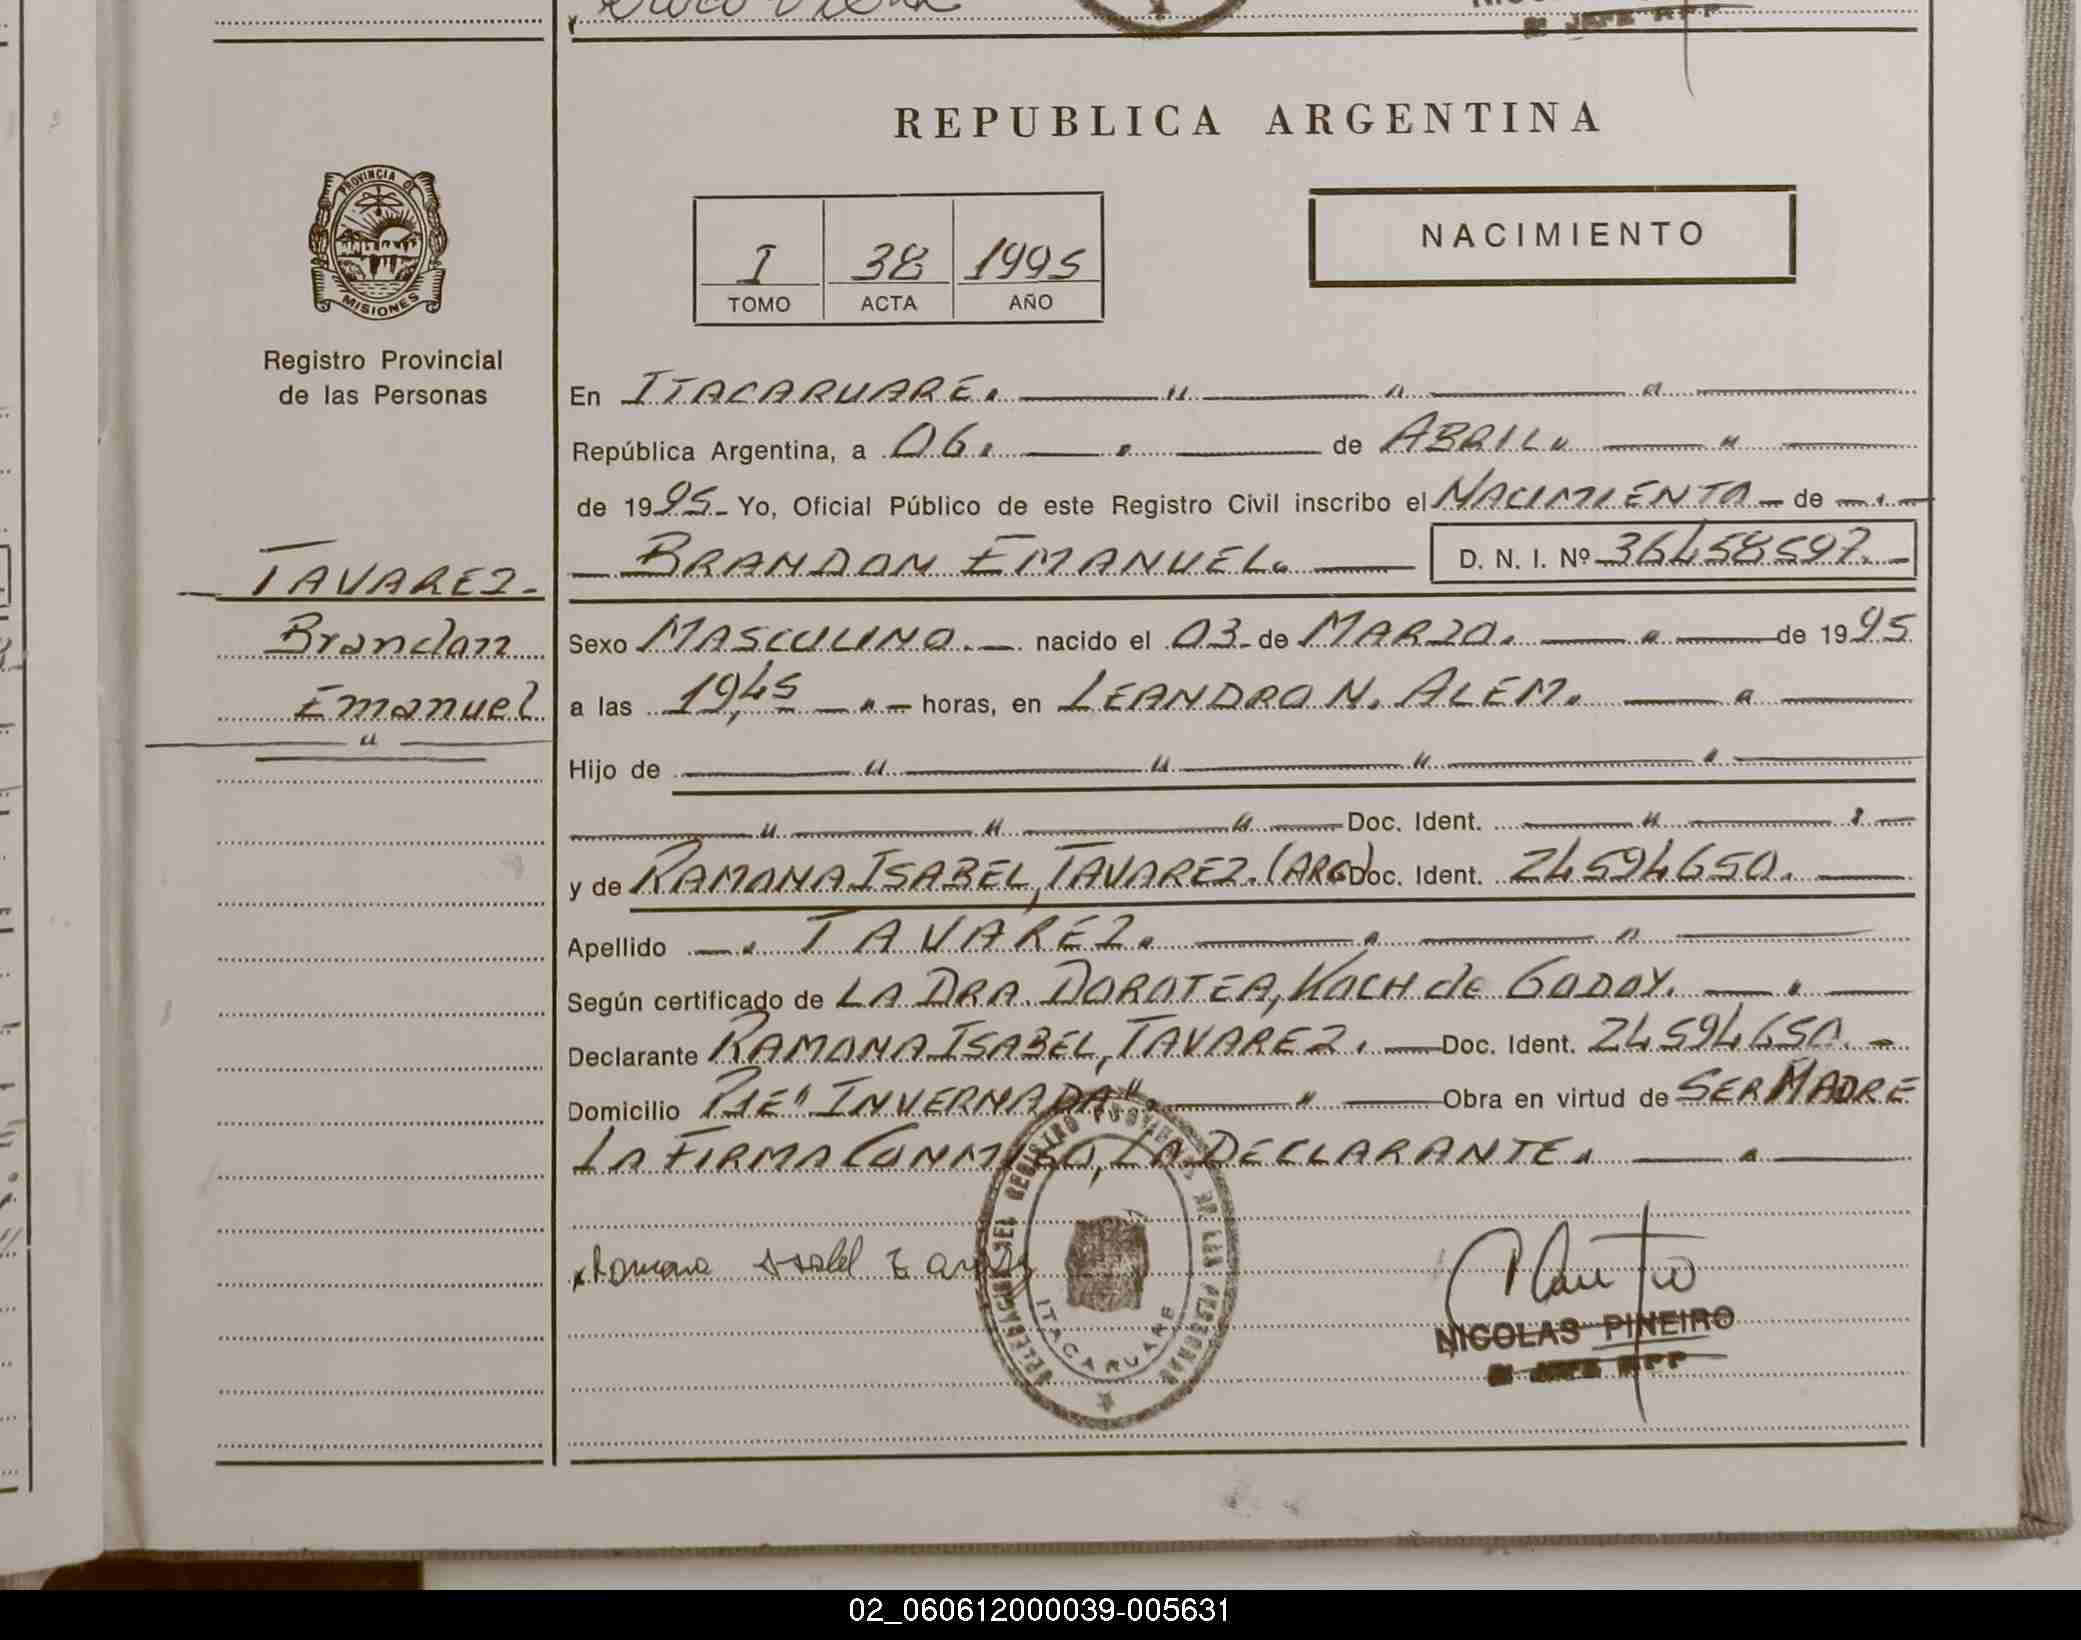 REPUBLICA ARGENTINA
PROVINCIA DE
MISIONES
Registro Provincial
de las Personas
TAVAREZ.
Brandon
Emanuel
I 38 1995
TOMO ACTA AÑO
NACIMIENTO
En ITACARUARE.
República Argentina, a 06. de ABRIL
de 1995 Yo, Oficial Público de este Registro Civil inscribo el NACIMIENTO de
BRANDON EMANUEL. D. N. I. Nº 36458597.
Sexo MASCULINO. nacido el 03 de MARZO. de 1995
a las 19,45 horas, en LEANDRO N. ALEM.
Hijo de
Doc. Ident.
y de RAMONA ISABEL, TAVAREZ. (ARG) Doc. Ident. 24594650.
Apellido TAVAREZ.
Según certificado de LA DRA. DOROTEA, KOCH de GODOY.
Declarante RAMONA ISABEL, TAVAREZ. Doc. Ident. 24594650.
Domicilio PJE "INVERNADA". Obra en virtud de SER MADRE
LA FIRMA CONMIGO, LA DECLARANTE.
Ramona Isabel
DELEGACION DEL REGISTRO PROVINCIAL DE LAS PERSONAS
ITACARUARE
NICOLAS PINEIRO
JEFE RPP
02_060612000039-005631